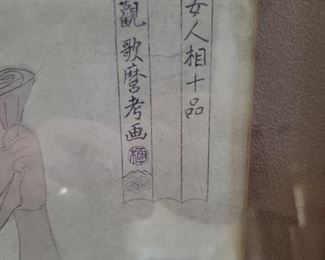 女人相十品
觀 歌麿考画
極